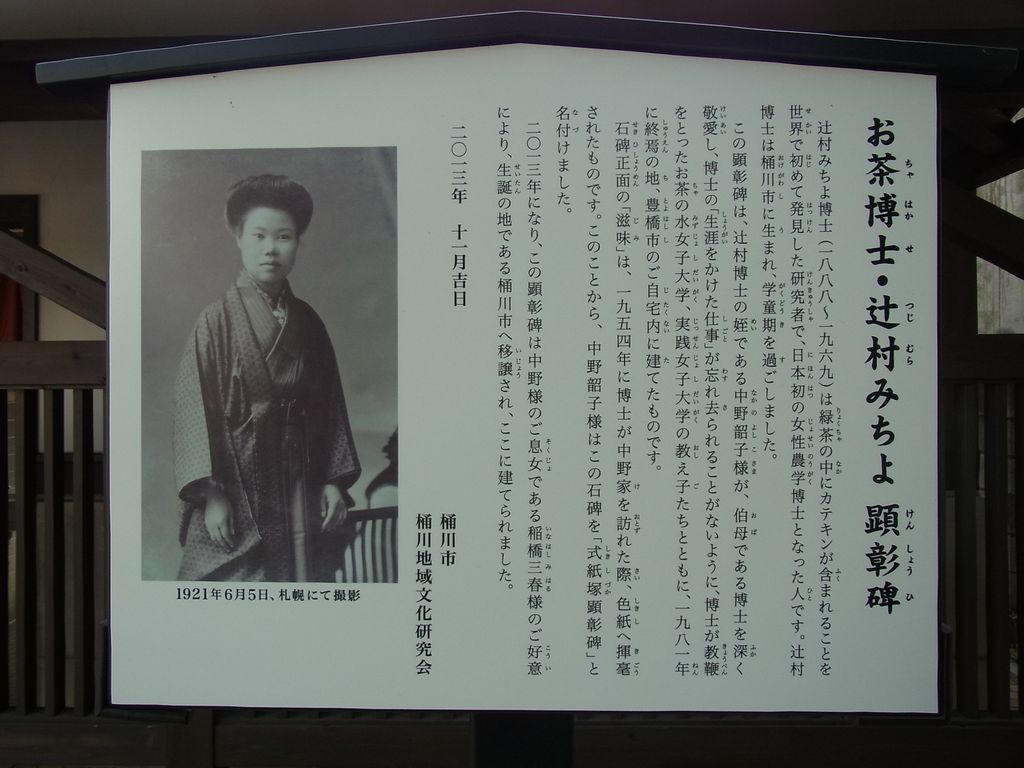 お茶博士・辻村みちよ 顕彰碑
辻村みちよ博士(一八八八〜一九六九)は緑茶の中にカテキンが含まれることを
世界で初めて発見した研究者で、日本初の女性農学博士となった人です。辻村
博士は桶川市に生まれ、学童期を過ごしました。
この顕彰碑は、辻村博士の姪である中野韶子様が、伯母である博士を深く
敬愛し、博士の「生涯をかけた仕事」が忘れ去られることがないように、博士が教鞭
をとったお茶の水女子大学、実践女子大学の教え子たちとともに、一九八一年
に終焉の地、豊橋市のご自宅内に建てたものです。
石碑正面の「滋味」は、一九五四年に博士が中野家を訪れた際、色紙へ揮毫
されたものです。このことから、中野韶子様はこの石碑を「式紙塚顕彰碑」と
名付けました。
二〇一三年になり、この顕彰碑は中野様のご息女である稲橋三春様のご好意
により、生誕の地である桶川市へ移譲され、ここに建てられました。
二〇一三年 十一月吉日
桶川市
桶川地域文化研究会
1921年6月5日、札幌にて撮影